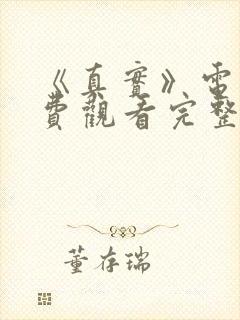 《真實》電
費觀看完整
董存瑞